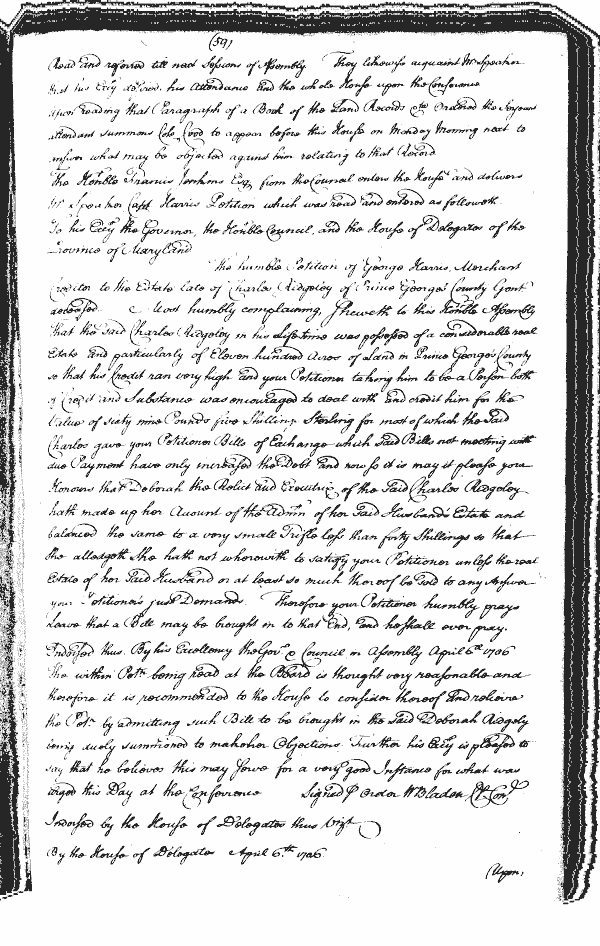 (59)
Read and referred till next Sessions of Assembly They likewise acquaint Mr Speaker
that his Exey desired his Attendance and the whole House upon the Conference
Upon reading that Paragraph of a Book of the Land Records &c Ordered the Serjeant
attendant summons Colo Good to appear before this House on Monday Morning next to
answer what may be objected against him relating to that Record
The Honble Francis Jenkins Esq from the Council enters the House and delivers
Mr Speaker Capt Harris Petition which was read and entered as followeth
To his Exey the Governor, the Honble Council, and the House of Delegates of the
Province of Maryland
The humble Petition of George Harris, Merchant
Creditor to the Estate Late of Charles Ridgeley of Prince Georges County Gent
deceased. Most humbly complaining, Sheweth to this Honble Assembly
that the said Charles Ridgeley in his Life time was possessed of a considerable real
Estate and particularly of Eleven hundred Acres of Land in Prince Georges County
so that his Credit ran very high and your Petitioner taking him to be a Person both
of Credit and Substance was encouraged to deal with and credit him for the
Value of sixty nine Pounds five Shillings Sterling for most of which the said
Charles gave your Petitioner Bills of Exchange which said Bills not meeting with
due Payment have only increased the Debt and now so it is may it please your
Honours that Deborah the Relict and Executrix of the said Charles Ridgeley
hath made up her Account of the Admn of her said Husbands Estate and
balanced the same to a very small Trifle less than forty Shillings so that
she alledgeth she hath not wherewith to satisfy your Petitioner unless the real
Estate of her said Husband or at least so much thereof be sold to any Answer
your Petitioner's just Demands. Therefore your Petitioner humbly prays
Leave that a Bill may be brought in to that End, and he shall ever pray.
Endorsed thus. By his Excellency the Govr & Council in Assembly April 6th 1706
The within Petn being read at the Board is thought very reasonable and
therefore it is recommended to the House to consider thereof and relieve
the Petr by admitting such Bill to be brought in the said Deborah Ridgely
being duely summoned to make her Objections Further his Exey is pleased to
say that he believes this may serve for a very good Instance for what was
urged this Day at the Conference Signed p Order W Bladen Cl Con
Indorsed by the House of Delegates thus Vizt
By the House of Delegates April 6th 1706.
Upon,